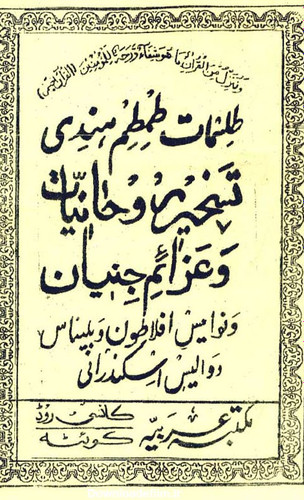 وننزل من القرآن ما هو شفاء ورحمة للمؤمنين (القرآن کریم)
طلسمات طمطم ہندی
تسخیر روحانیات
وعزائم جنیان
ونوامیس افلاطون وبلیناس
دوالیس اسکندرانی
مکتبہ عربیہ
کانسی روڈ
کوئٹہ